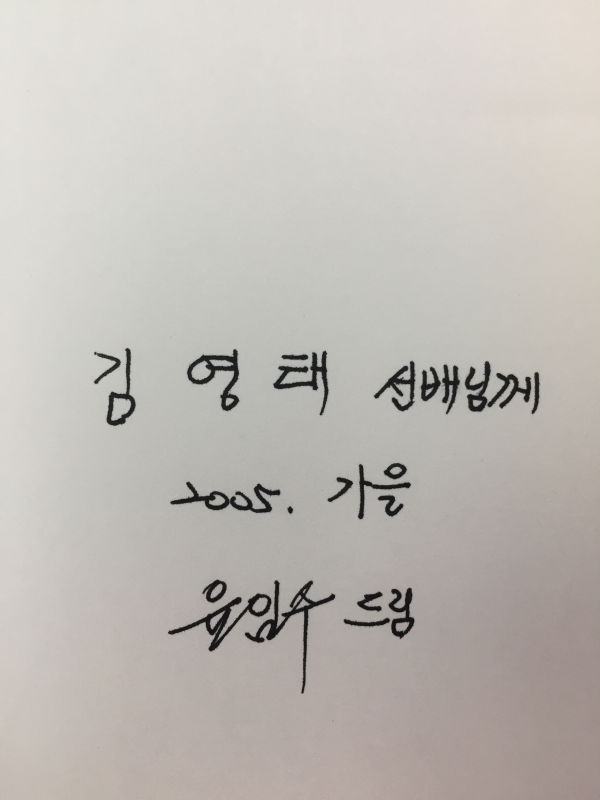 김 영 태 선배님께
2005. 가을
유임수 드림